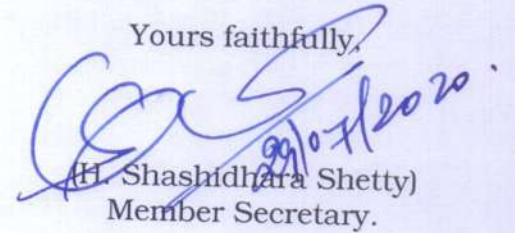 Yours faithfully,
29/07/2020.
(H. Shashidhara Shetty)
Member Secretary.